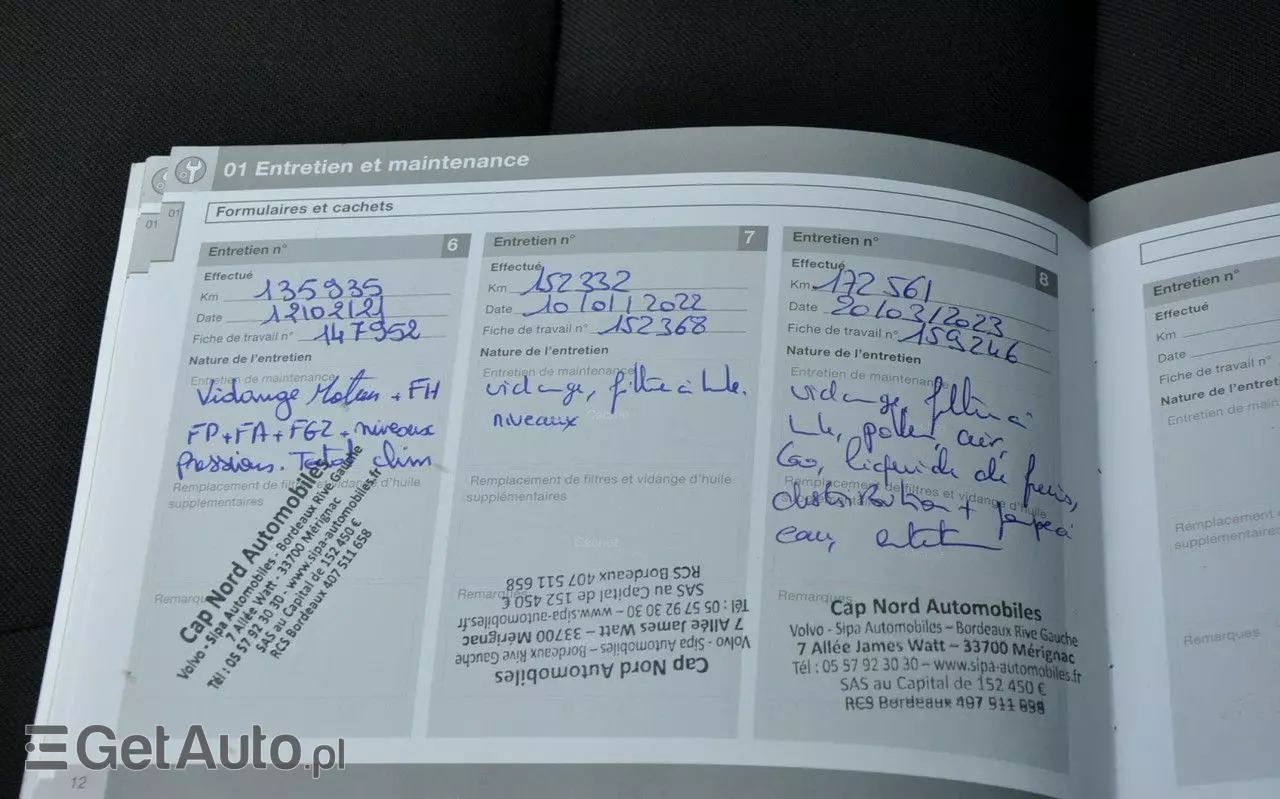 01 Entretien et maintenance
01
01
Formulaires et cachets
Entretien n° 6
Effectué
Km 135935
Date 12102121
Fiche de travail n° 147952
Nature de l'entretien
Entretien de maintenance
Vidange Moteur + FH
FP+FA+FGZ+niveaux
Pressions. clim
Remplacement de filtres et vidange d'huile
supplémentaires
Remarques
Cap Nord Automobiles
Volvo - Sipa Automobiles - Bordeaux Rive Gauche
7 Allée Watt - 33700 Mérignac
Tél : 05 57 92 30 30 - www.sipa-automobiles.fr
SAS au Capital de 152 450 €
RCS Bordeaux 407 511 658
Entretien n° 7
Effectué
Km 152332
Date 10/01/2022
Fiche de travail n° 152368
Nature de l'entretien
Entretien de maintenance
vidange, filtre à
niveaux
Cachet
Remplacement de filtres et vidange d'huile
supplémentaires
Cachet
Remarques
Cap Nord Automobiles
Volvo - Sipa Automobiles – Bordeaux Rive Gauche
7 Allée James Watt – 33700 Mérignac
Tél : 05 57 92 30 30 – www.sipa-automobiles.fr
SAS au Capital de 152 450 €
RCS Bordeaux 407 511 658
Entretien n° 8
Effectué
Km 172561
Date 20/03/2023
Fiche de travail n° 159246
Nature de l'entretien
Entretien de maintenance
vidange, filtre à
pollen, air,
Go, liquide de freins,
distribution + pompe à
eau,
Remplacement de filtres et vidange d'huile
supplémentaires
Remarques
Cap Nord Automobiles
Volvo - Sipa Automobiles – Bordeaux Rive Gauche
7 Allée James Watt – 33700 Mérignac
Tél : 05 57 92 30 30 – www.sipa-automobiles.fr
SAS au Capital de 152 450 €
RCS Bordeaux
Entretien n°
Effectué
Km
Date
Fiche de travail n°
Nature de l'entreti
Entretien de main
Remplacement
supplémentaires
Remarques
12
GetAuto.pl